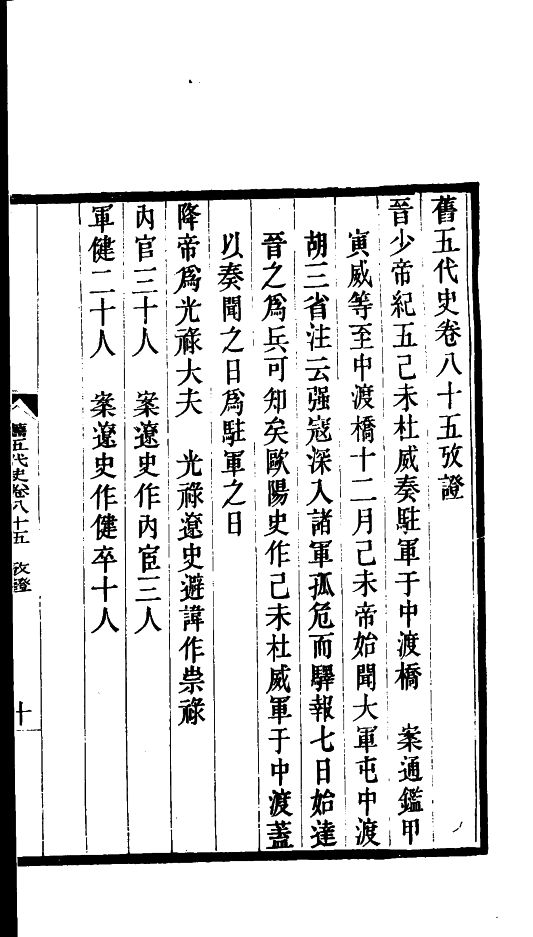 舊五代史卷八十五攷證
晉少帝紀五己未杜威奏駐軍于中渡橋　案通鑑甲
寅威等至中渡橋十二月己未帝始聞大軍屯中渡
胡三省注云强寇深入諸軍孤危而驛報七日始達
晉之爲兵可知矣歐陽史作己未杜威軍于中渡蓋
以奏聞之日爲駐軍之日
降帝爲光祿大夫　光祿遼史避諱作崇祿
內官三十人　案遼史作內宦三人
軍健二十人　案遼史作健卒十人
舊五代史卷八十五　攷證
十